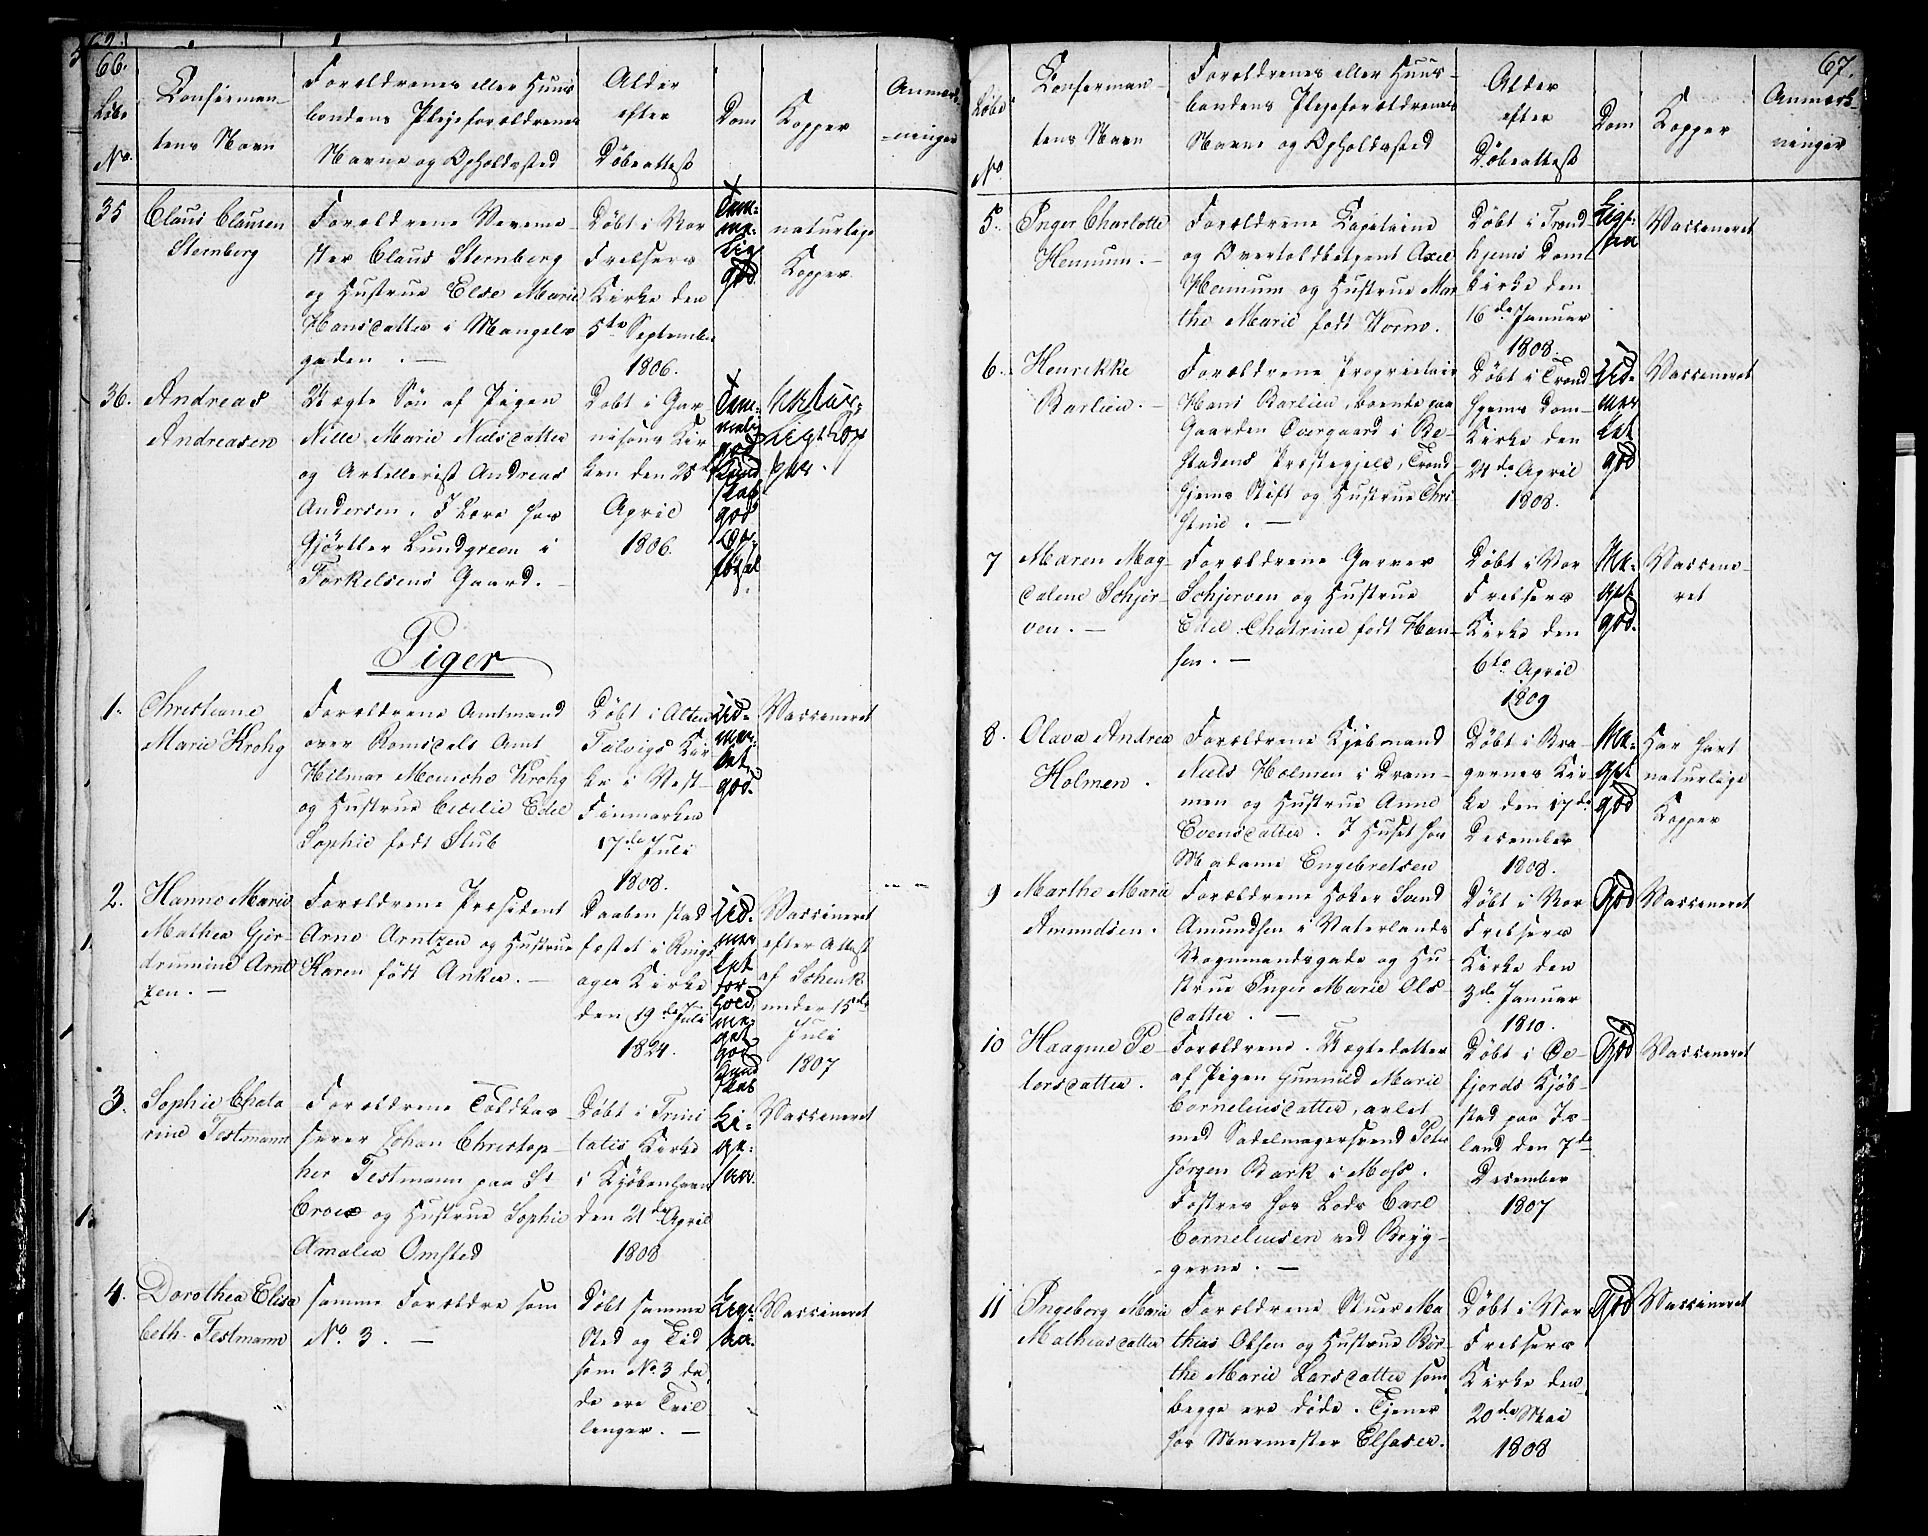 66.
Løbe
No.
Conferman-
tens Navn
Forældrenes eller Huus
bondens Plejeforældrenes
Navne og Opholdssted
Alder
efter
Døbeattest
Dom
Kopper
Anmærk-
ninger
35
Claus Clausen
Sternberg
Forældrene Vereme-
ster Claus Sternberg
og Hustrue Else Marie
Hansdatter i Mangels
gaden . —
Døbt i Vor
Frelsers
Kirke den
5te September
1806.
Tem-
me-
lig
god.
naturlige
Kopper
36.
Andreas
Andreasen
Uægte Søn af Pigen
Nille Marie Nielsdatter
og Artellerist Andreas
Andersen. I Lære hos
Gjørtler Lundgreen i
Torkelsens Gaard. —
Døbt i Gar
nisons Kir
ken den 25de
April
1806.
Tem-
melig
god
Kund
skab
god
Op-
førsel
Naturligt Kop
per.
Piger
1.
Christiane
Marie Krohg
Forældrene Amtmand
over Romsdals Amt
Hilmar Meincke Krohg
og Hustrue Cecilie Edel
Sophie født Stub
Døbt i Alten
Talvigs Kir
ke i Vest-
Finmarken
17de Juli
1808.
Ud-
mær-
ket
god.
Vaccineret
2.
Hanne Marie
Mathea Gjer-
drumine Arnt
zen. —
Forældrene Præsident
Arne Arntzen og Hustrue
Karen født Anker. —
Daaben stad
fæstet i Rings
ager Kirke
den 19de Juli
1824.
Ud-
mær
ket
for-
hold
me-
get
god
Kund
skab
Vaccineret
efter Attest
af Schenk
under 15de
Juli
1807
3.
Sophie Chata
rine Testmann
Forældrene Toldkas-
serer Johan Christop-
her Testmann paa St
Croix og Hustrue Sophie
Amalia Omsted
Døbt i Trini
tatis Kirke
i Kjøbenhavn
den 21de April
1808
Li-
ge-
saa.
Vaccineret
4.
Dorothea Elisa
beth Testmann
samme Forældre som
No. 3. —
Døbt samme
Sted og Tid
som No 3 da
de ere Tvil
linger. —
Lige-
saa.
Vaccineret
67.
Løbe
No
Conferman-
tens Navn
Forældrenes eller Huus-
bondens Plejeforældrenes
Navne og Opholdssted
Alder
efter
Døbeattest
Dom
Kopper
Anmærk-
ninger
5.
Inger Charlotte
Hemmum. —
Forældrene Capitaine
og Overtoldbetjent Axel
Hemmum og Hustrue Mar
the Marie født Worm.
Døbt i Trond
hjems Dom
kirke den
16de Januar
1808.
Lige-
saa
Vaccineret
6.
Henrikke
Barlien. —
Forældrene Proprietair
Hans Barlien, boende paa
Gaarden Overgaard i Be-
stadens Præstegjeld, Trond
hjems Stift og Hustrue Chri
stine. —
Døbt i Trond
hjems Dom-
Kirke den
24de April
1808.
Ud-
mær
ket
god
Vaccineret
7
Maren Mag-
dalene Schjer-
ven. —
Forældrene Garver
Schjerven og Hustrue
Edel Chatrine født Han-
sen. —
Døbt i Vor
Frelsers
Kirke den
6te April
1809
Me-
get
god.
Vaccene-
ret
8.
Olava Andrea
Holmen.
Forældrene Kjøbmand
Niels Holmen i Dram-
men og Hustrue Anne
Evensdatter. I Huset hos
Madame Engebretsen
Døbt i Bra-
gernes Kir-
ke den 17de
December
1808.
Me-
get
god
Har havt
naturlige
Kopper
9
Marthe Marie
Amundsen.
Forældrene Høker Svend
Amundsen i Vaterlands
Vognmandsgade og Hu-
strue Inger Marie Ols-
datter. —
Døbt i Vor
Frelsers
Kirke den
3de Januar
1810.
God
Vaccineret
10
Haagine Pe-
tersdatter.
Forældrene. Uægtedatter
af Pigen Gunnild Marie
Corneliusdatter, avlet
med Sadelmagersvend Peter
Jørgen Bark i Moss.
Fostres hos Lods Carl
Corneliussen ved Bryg-
gerne. —
Døbt i Oe-
fjords Kjøb-
stad paa Is-
land den 7de
December
1807
God
Vaccineret
11
Ingeborg Marie
Mathiasdatter
Forældrene Stuer Ma
thias Olsen og Hustrue Bor-
the Marie Larsdatter som
begge ere døde. Tjener
hos Muurmester Elsaser.
Døbt i Vor
Frelsers
Kirke den
20de Mai
1808
God
Vaccineret